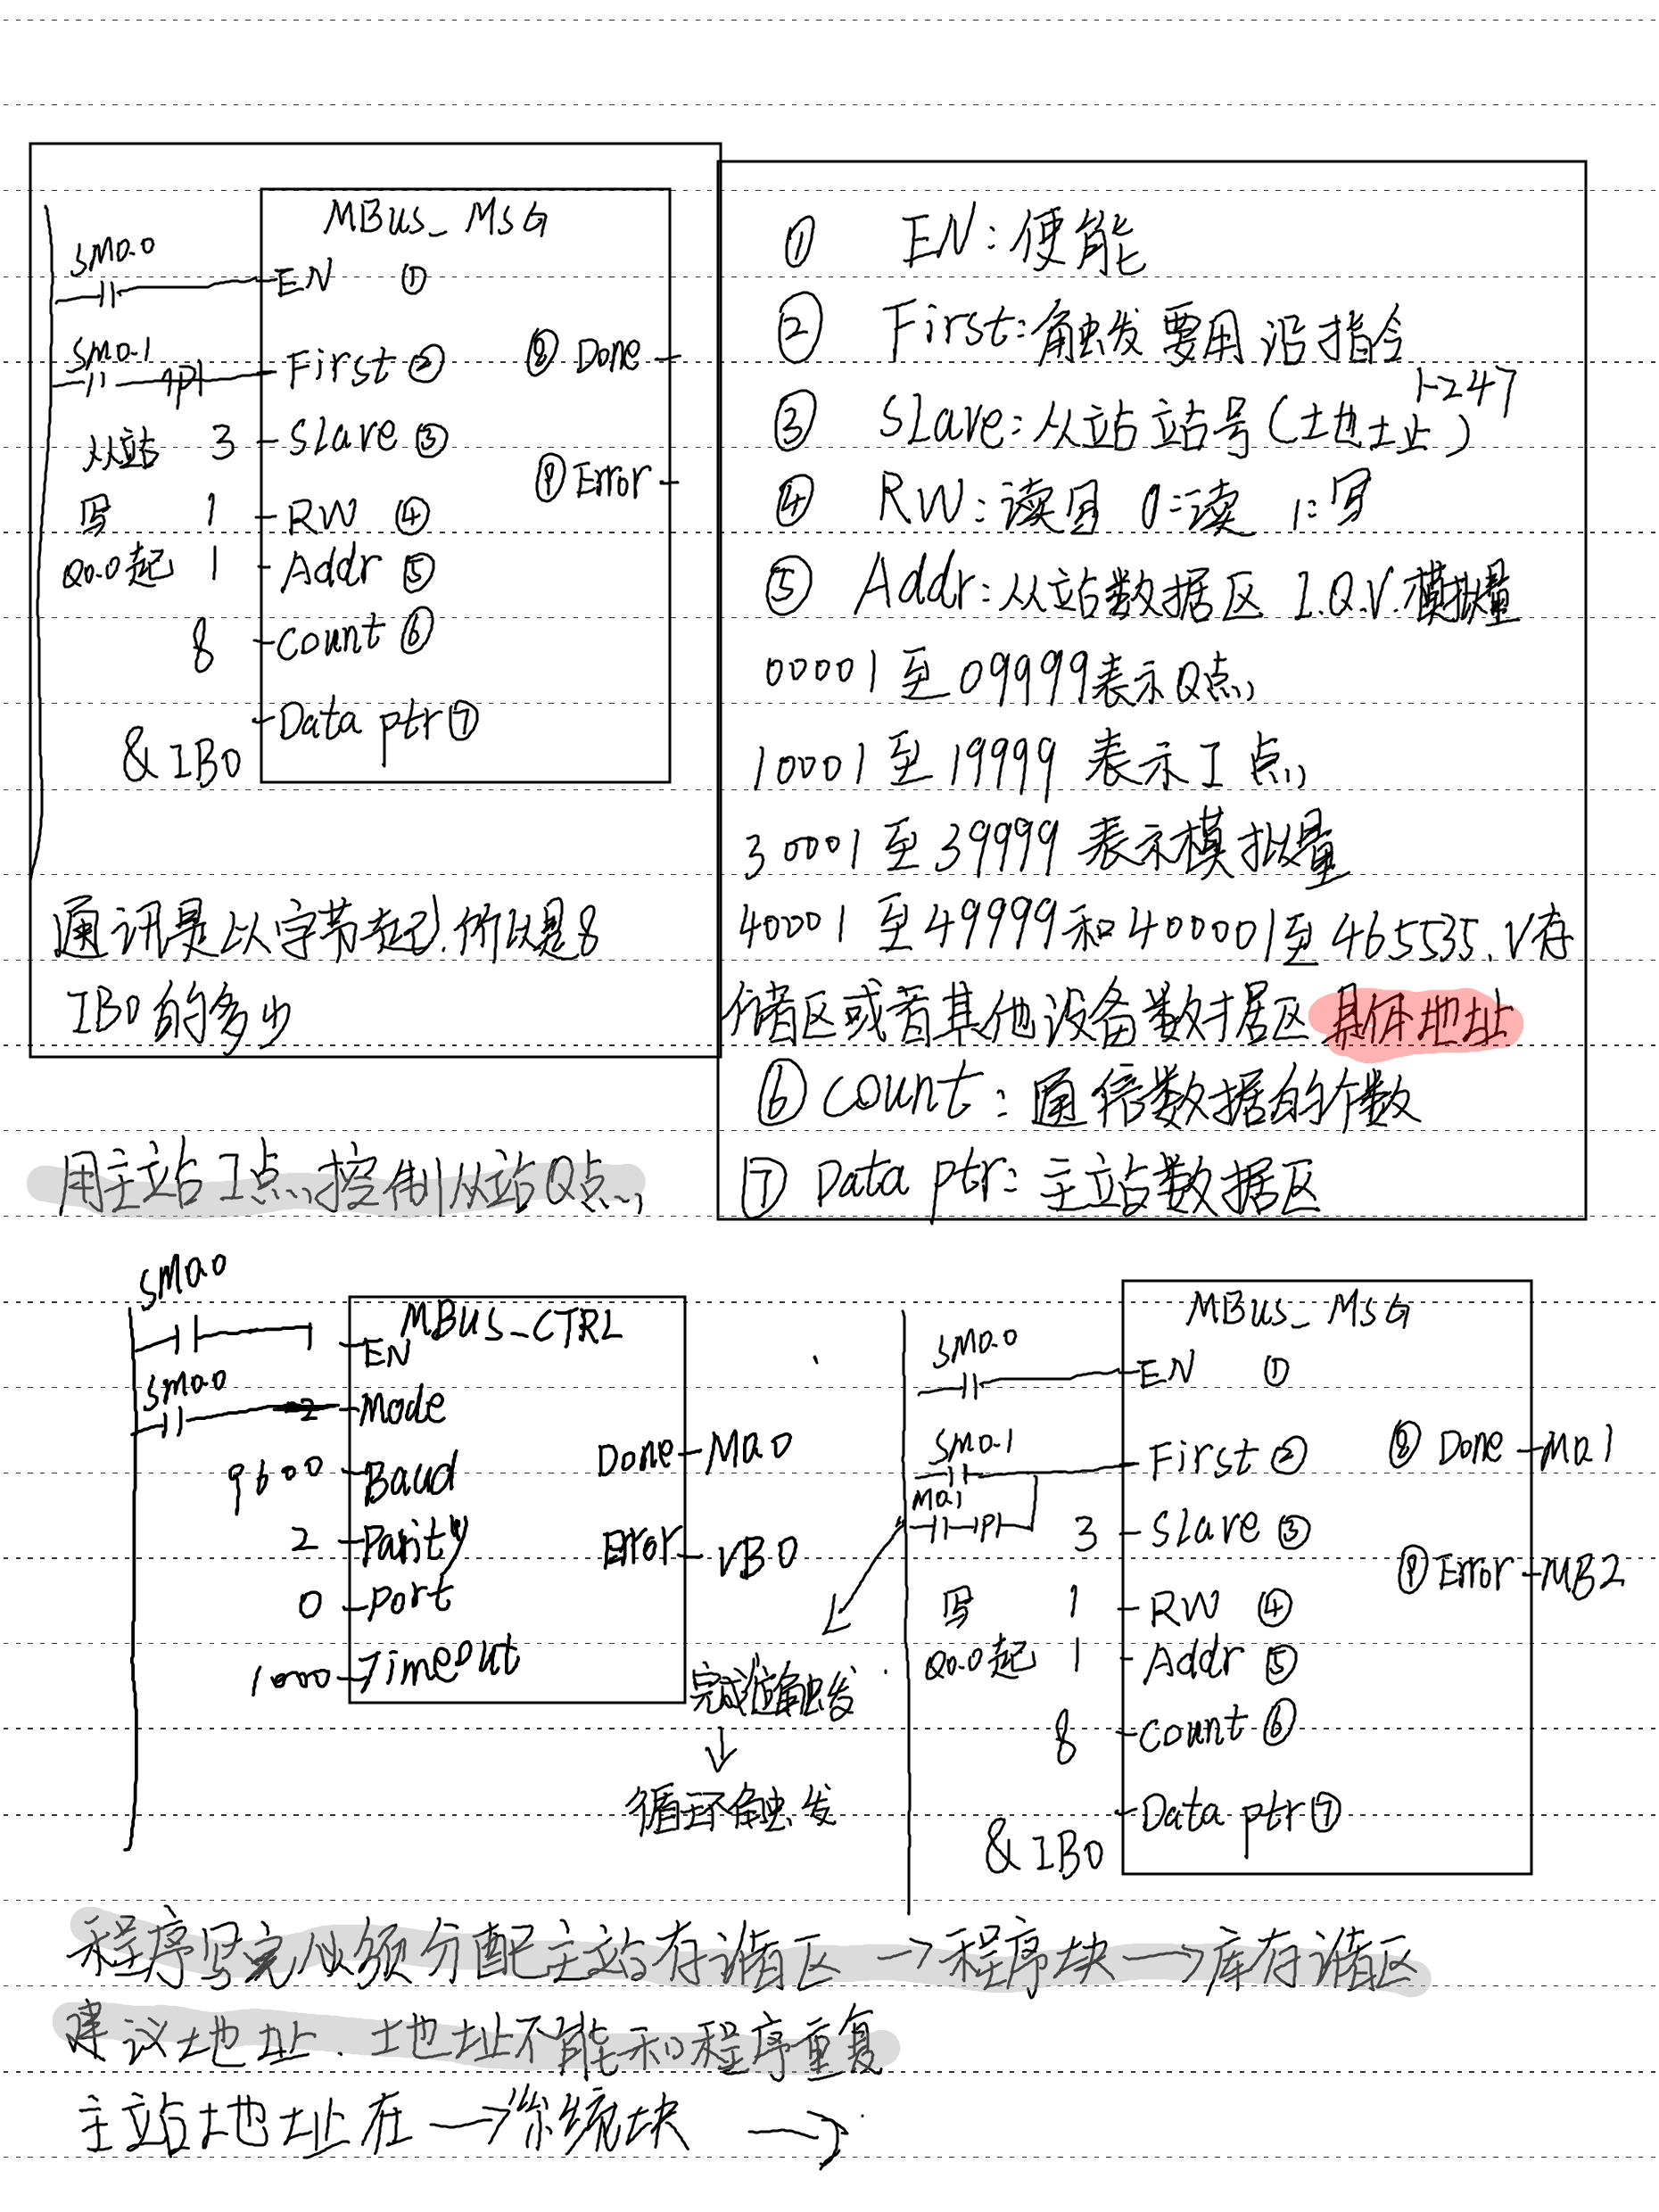 MBus_MSG
SM0.0
EN ①
SM0.1
P
First ② ⑧ Done
从站 3 Slave ③
⑨ Error
写 1 RW ④
Q0.0起 1 Addr ⑤
8 Count ⑥
&IB0 Data ptr ⑦
通讯是以字节起.所以是8
IB0的多少
① EN:使能
② First:触发要用沿指令
③ Slave:从站站号(地址) 1-247
④ RW:读写 0=读 1=写
⑤ Addr:从站数据区 I.Q.V.模拟量
00001至09999表示Q点
10001至19999表示I点
30001至39999表示模拟量
40001至49999和400001至465535.V存
储区或者其他设备数据区 具体地址
⑥ Count:通信数据的个数
⑦ Data ptr:主站数据区
用主站I点控制从站Q点
SM0.0
MBUS_CTRL
EN
SM0.0
2 Mode
9600 Baud Done M0.0
2 Parity Error VB0
0 Port
1000 Timeout
完成位触发
循环触发
MBus_MSG
SM0.0
EN ①
SM0.1
First ② ⑧ Done M0.1
M0.1
P
3 Slave ③
⑨ Error MB2
写 1 RW ④
Q0.0起 1 Addr ⑤
8 Count ⑥
&IB0 Data ptr ⑦
程序写完必须分配主站存储区→程序块→库存储区
建议地址.地址不能和程序重复
主站地址在→系统块→